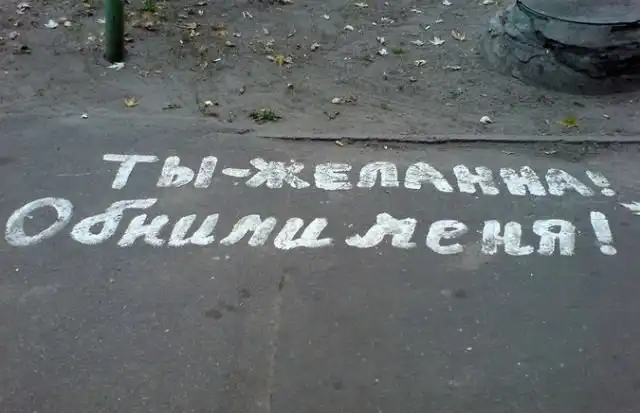 ты-желанна!
Обними меня!